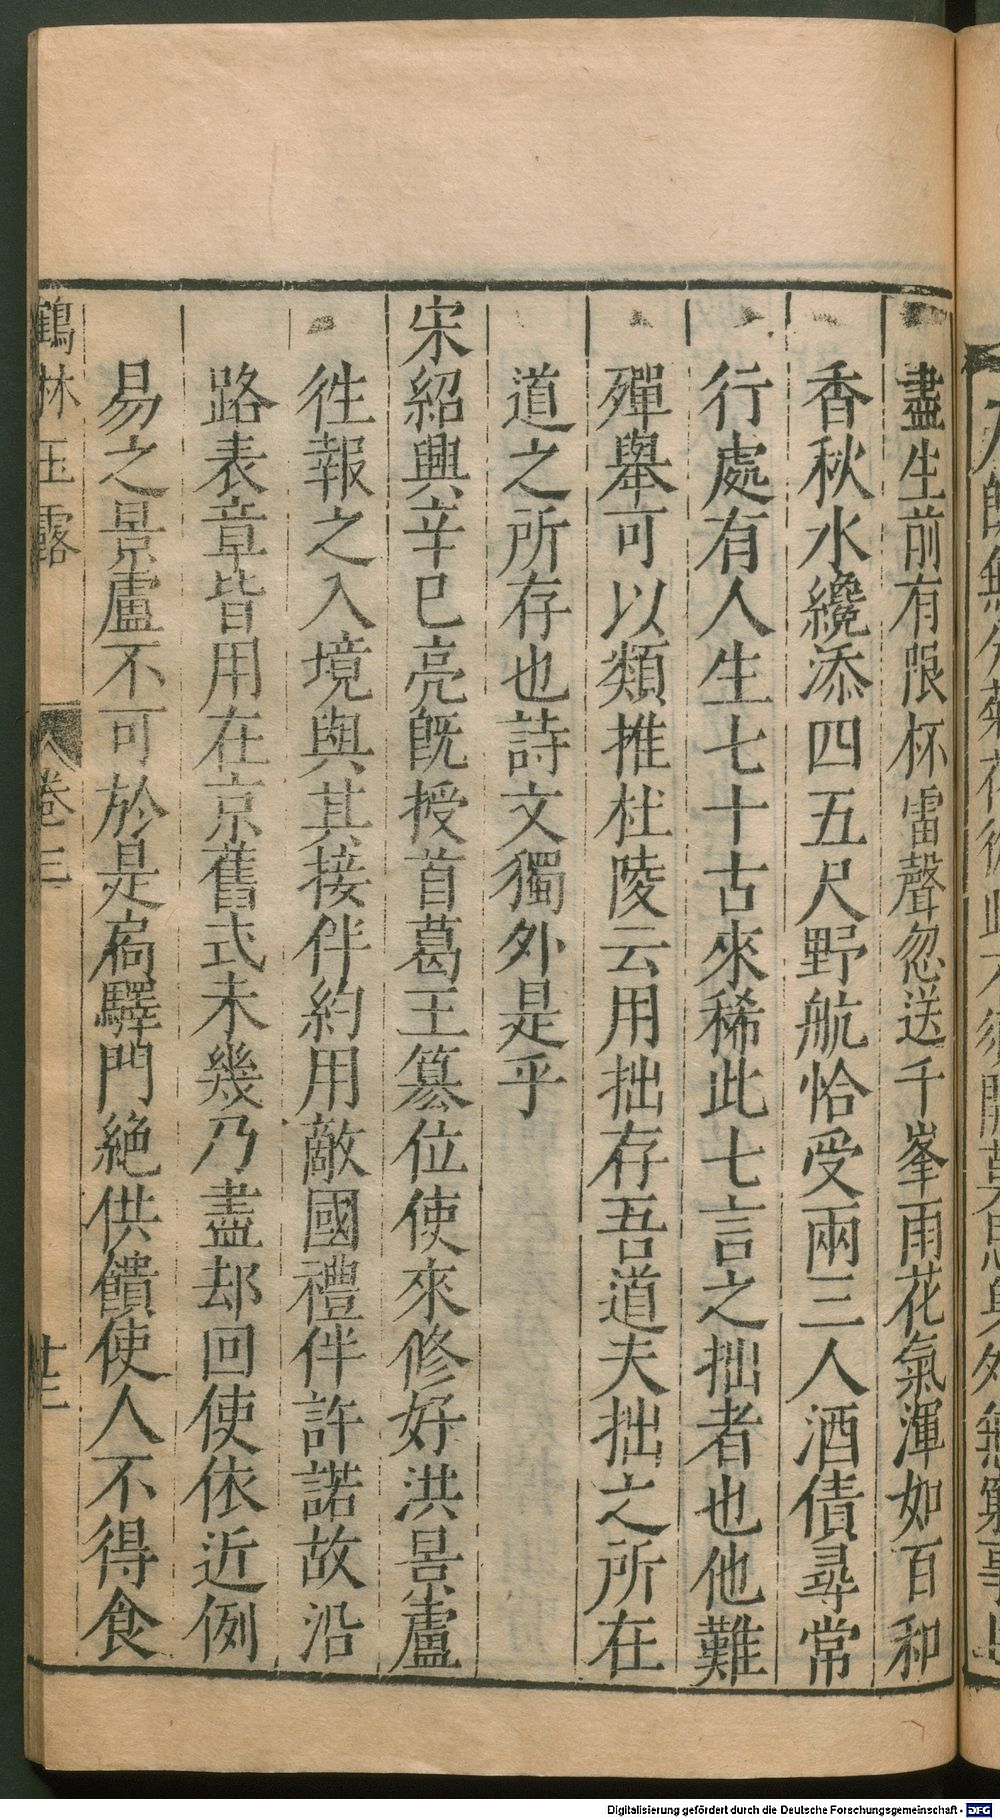 盡生前有限杯雷聲忽送千峯雨花氣渾如百和
香秋水纔添四五尺野航恰受兩三人酒債尋常
行處有人生七十古來稀此七言之拙者也他難
殫舉可以類推杜陵云用拙存吾道夫拙之所在
道之所存也詩文獨外是乎
宋紹興辛巳亮旣授首葛王篡位使來修好洪景盧
徃報之入境與其接伴約用敵國禮伴許諾故沿
路表章皆用在京舊式未幾乃盡却回使依近例
易之景盧不可於是扃驛門絶供饋使人不得食
鶴林玉露 卷三 廿三
Digitalisierung gefördert durch die Deutsche Forschungsgemeinschaft - DFG